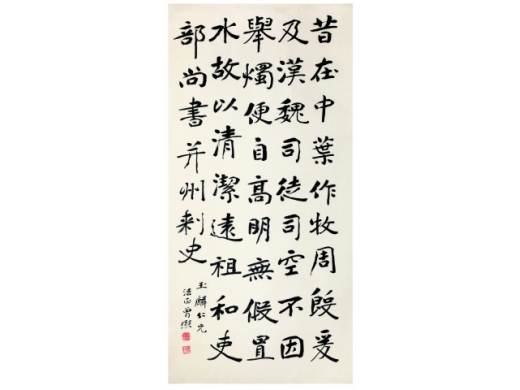 昔在中葉作牧周殷爰
及漢魏司徒司空不因
舉燭便自高明無假置
水故以清潔遠祖和吏
部尚書并州刺史
玉麟仁兄
法正曾熙